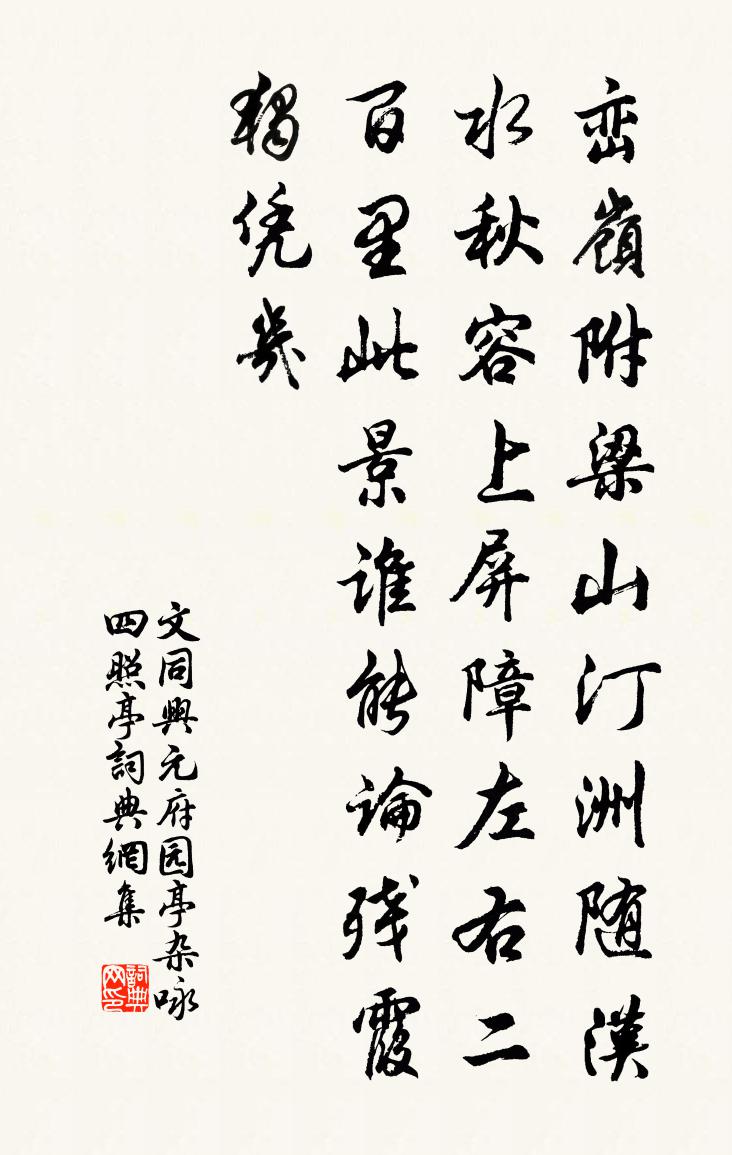 峦嶺附梁山汀洲随漢
水秋容上屏障左右二
百里此景谁能論残霞
獨凭幾
文同興元府园亭杂咏
四照亭詞典網集
詞典
网印